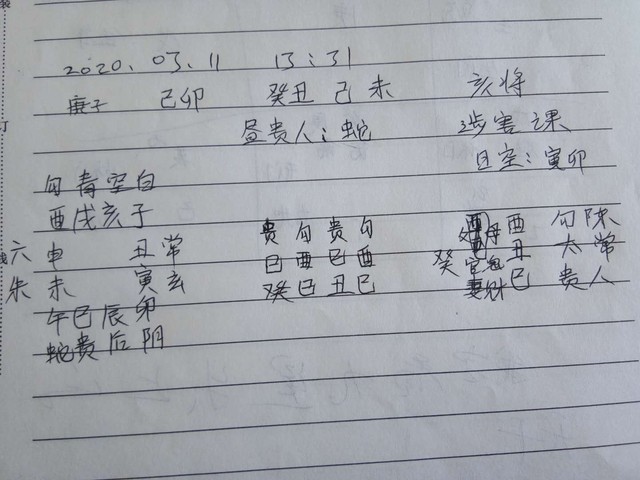 2020.03.11 13:31
庚子 己卯 癸丑 己未 亥将
昼贵人:蛇 涉害课
旦空:寅卯
勾青空白
酉戌亥子 贵勾贵勾 父母 酉 勾陈
六 申 丑常 巳酉巳酉 癸 官鬼 丑 太常
朱 未 寅玄 癸巳丑巳 妻财 巳 贵人
午巳辰卯
蛇贵后阴